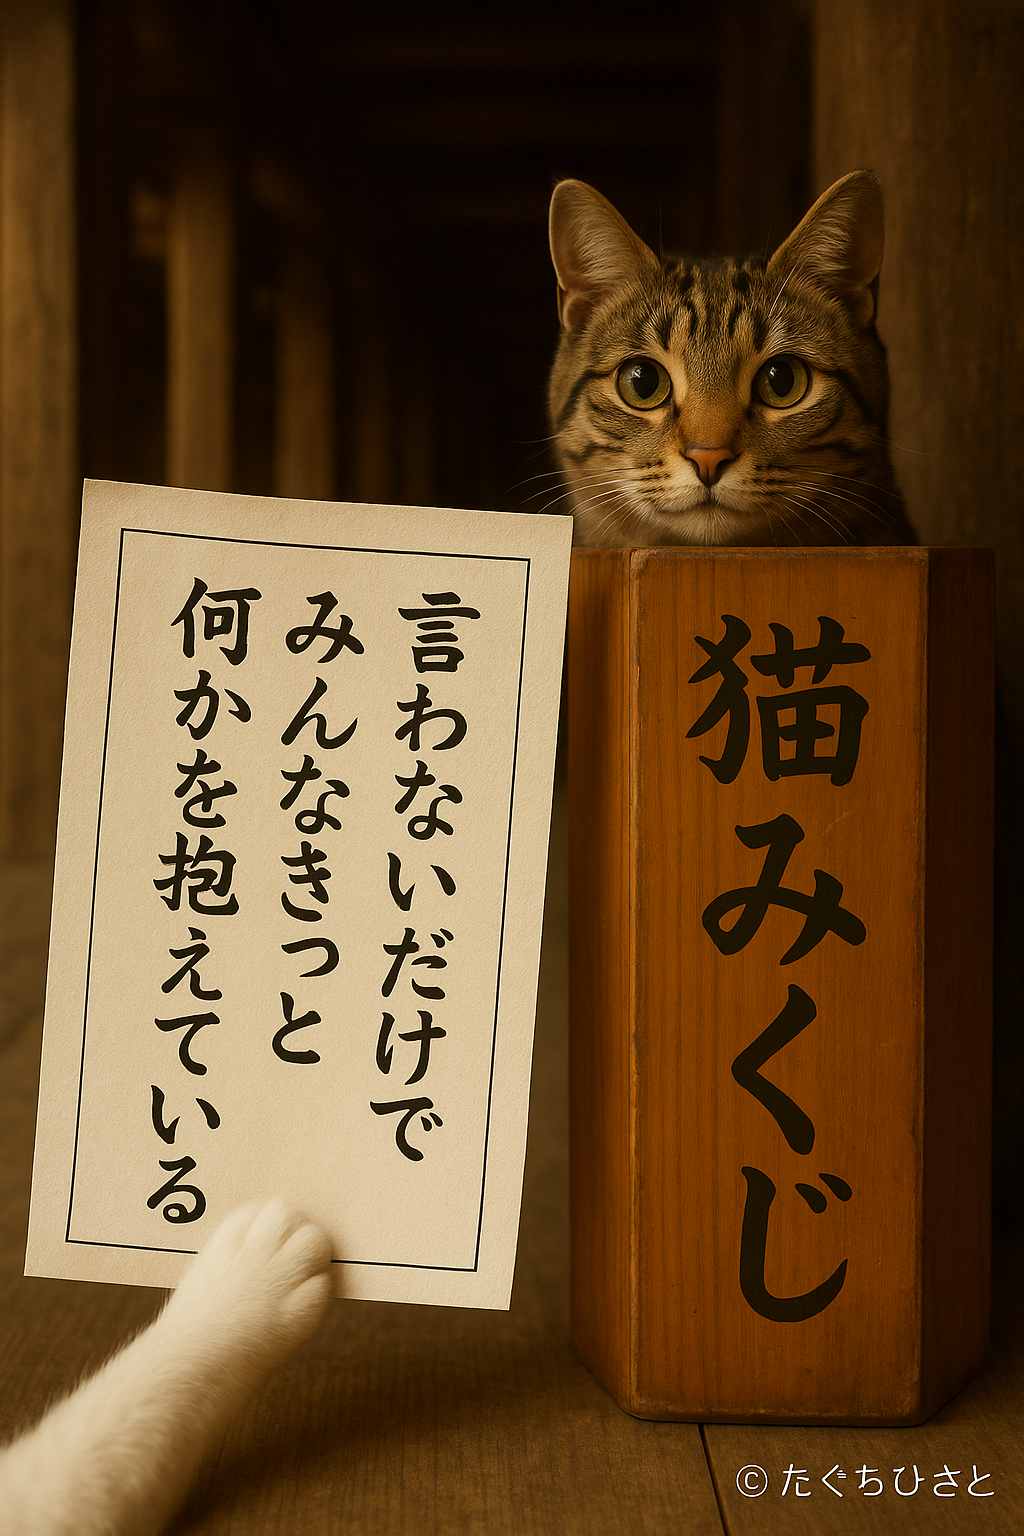 言わないだけで
みんなきっと
何かを抱えている
猫みくじ
© たぐちひさと